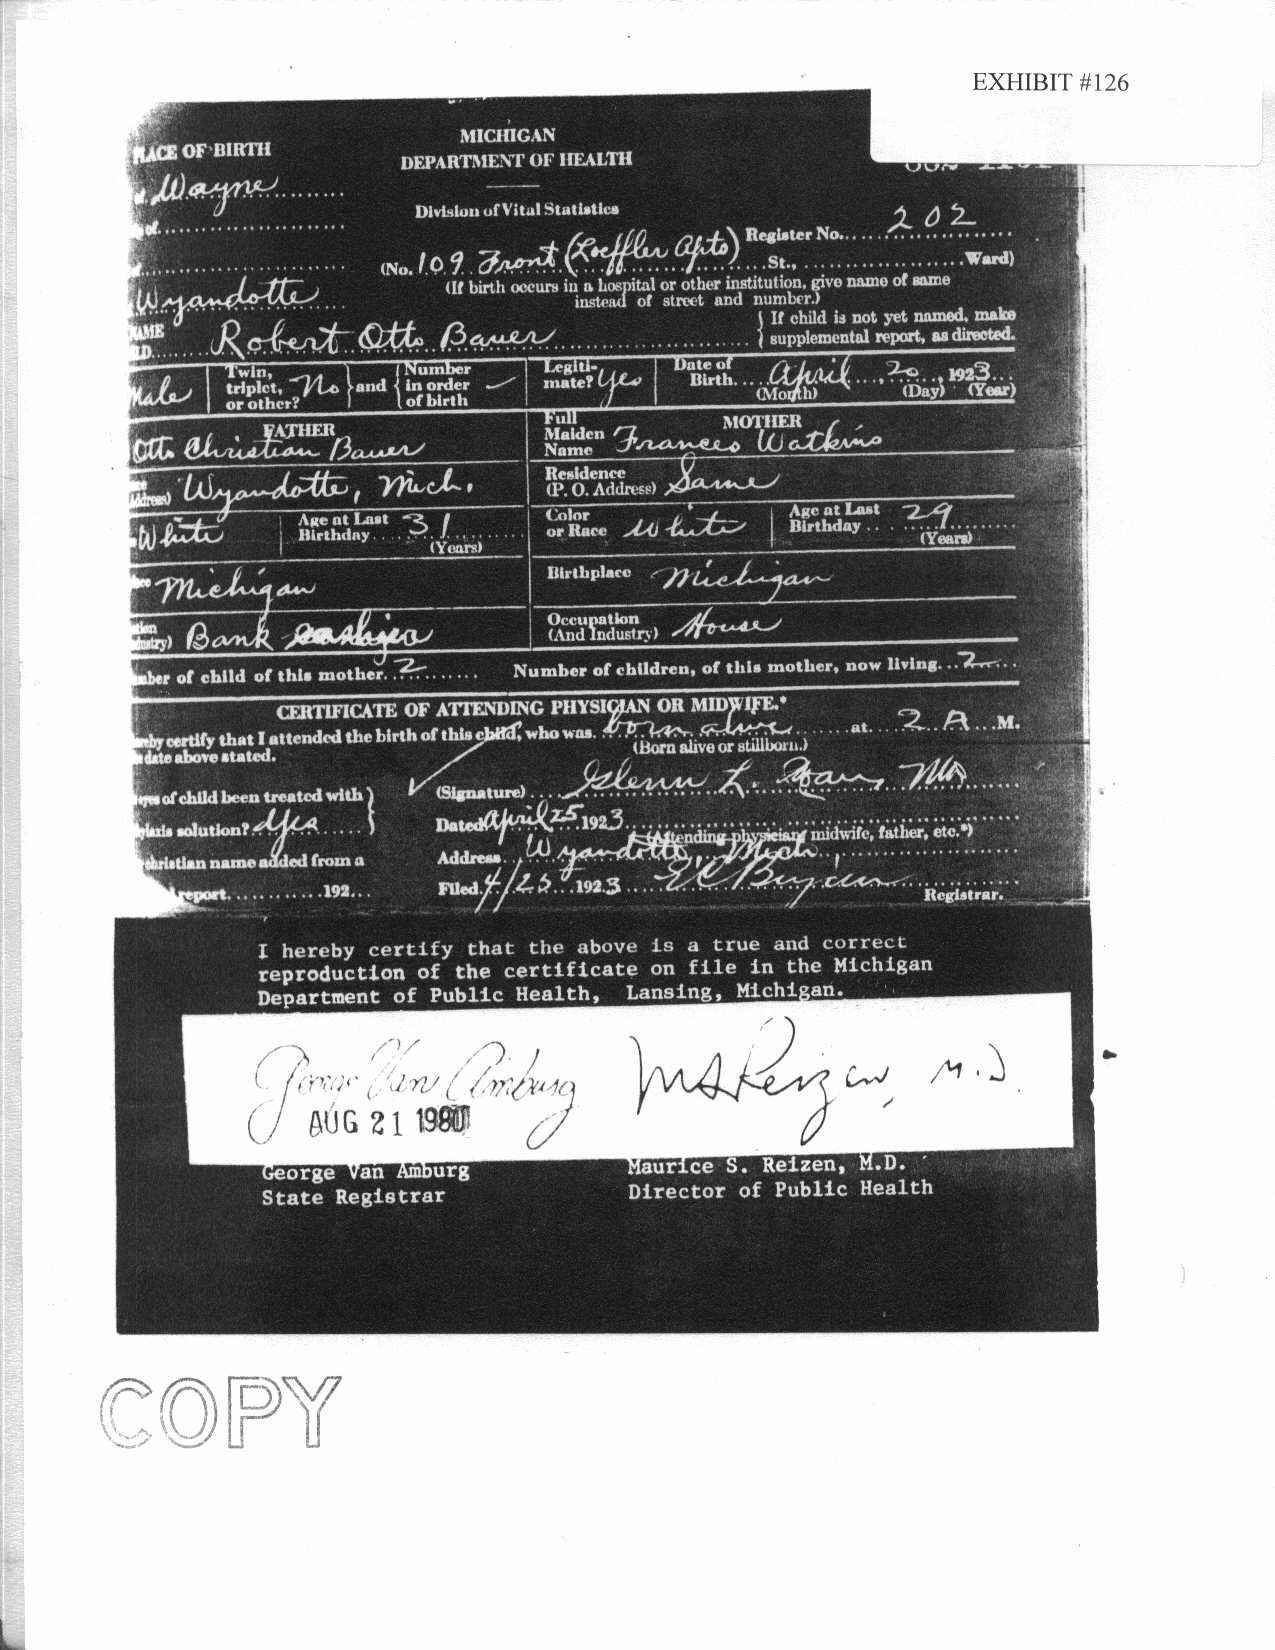 EXHIBIT #126
PLACE OF BIRTH
MICHIGAN
DEPARTMENT OF HEALTH
Wayne
Division of Vital Statistics
of
Register No. 202
(No. 109 Front (Loeffler Apts) St., Ward)
Wyandotte
(If birth occurs in a hospital or other institution, give name of same
instead of street and number.)
NAME
Robert Otto Bauer
If child is not yet named, make
supplemental report, as directed.
Male
Twin,
triplet,
or other?
No
and
Number
in order
of birth
Legiti-
mate? Yes
Date of
Birth. April 20, 1923
(Month) (Day) (Year)
FATHER
Otto Christian Bauer
Full
Maiden
Name
MOTHER
Frances Watkins
Address) Wyandotte, Mich.
Residence
(P. O. Address) Same
White
Age at Last
Birthday 31
(Years)
Color
or Race White
Age at Last
Birthday 29
(Years)
Michigan
Birthplace Michigan
Bank
Occupation
(And Industry) House
of child of this mother. 2
Number of children, of this mother, now living. 2
CERTIFICATE OF ATTENDING PHYSICIAN OR MIDWIFE.*
certify that I attended the birth of this child, who was born alive at 2 A M.
date above stated.
(Born alive or stillborn.)
eyes of child been treated with
solution? Yes
(Signature) Glenn L. MD
Dated April 25 1923
(Attending physician, midwife, father, etc.*)
christian name added from a
report 192
Address Wyandotte, Mich.
Filed 4/25 1923
Registrar.
I hereby certify that the above is a true and correct
reproduction of the certificate on file in the Michigan
Department of Public Health, Lansing, Michigan.
George Van Amburg
M S Reizen, M.D.
AUG 21 1980
George Van Amburg
State Registrar
Maurice S. Reizen, M.D.
Director of Public Health
COPY